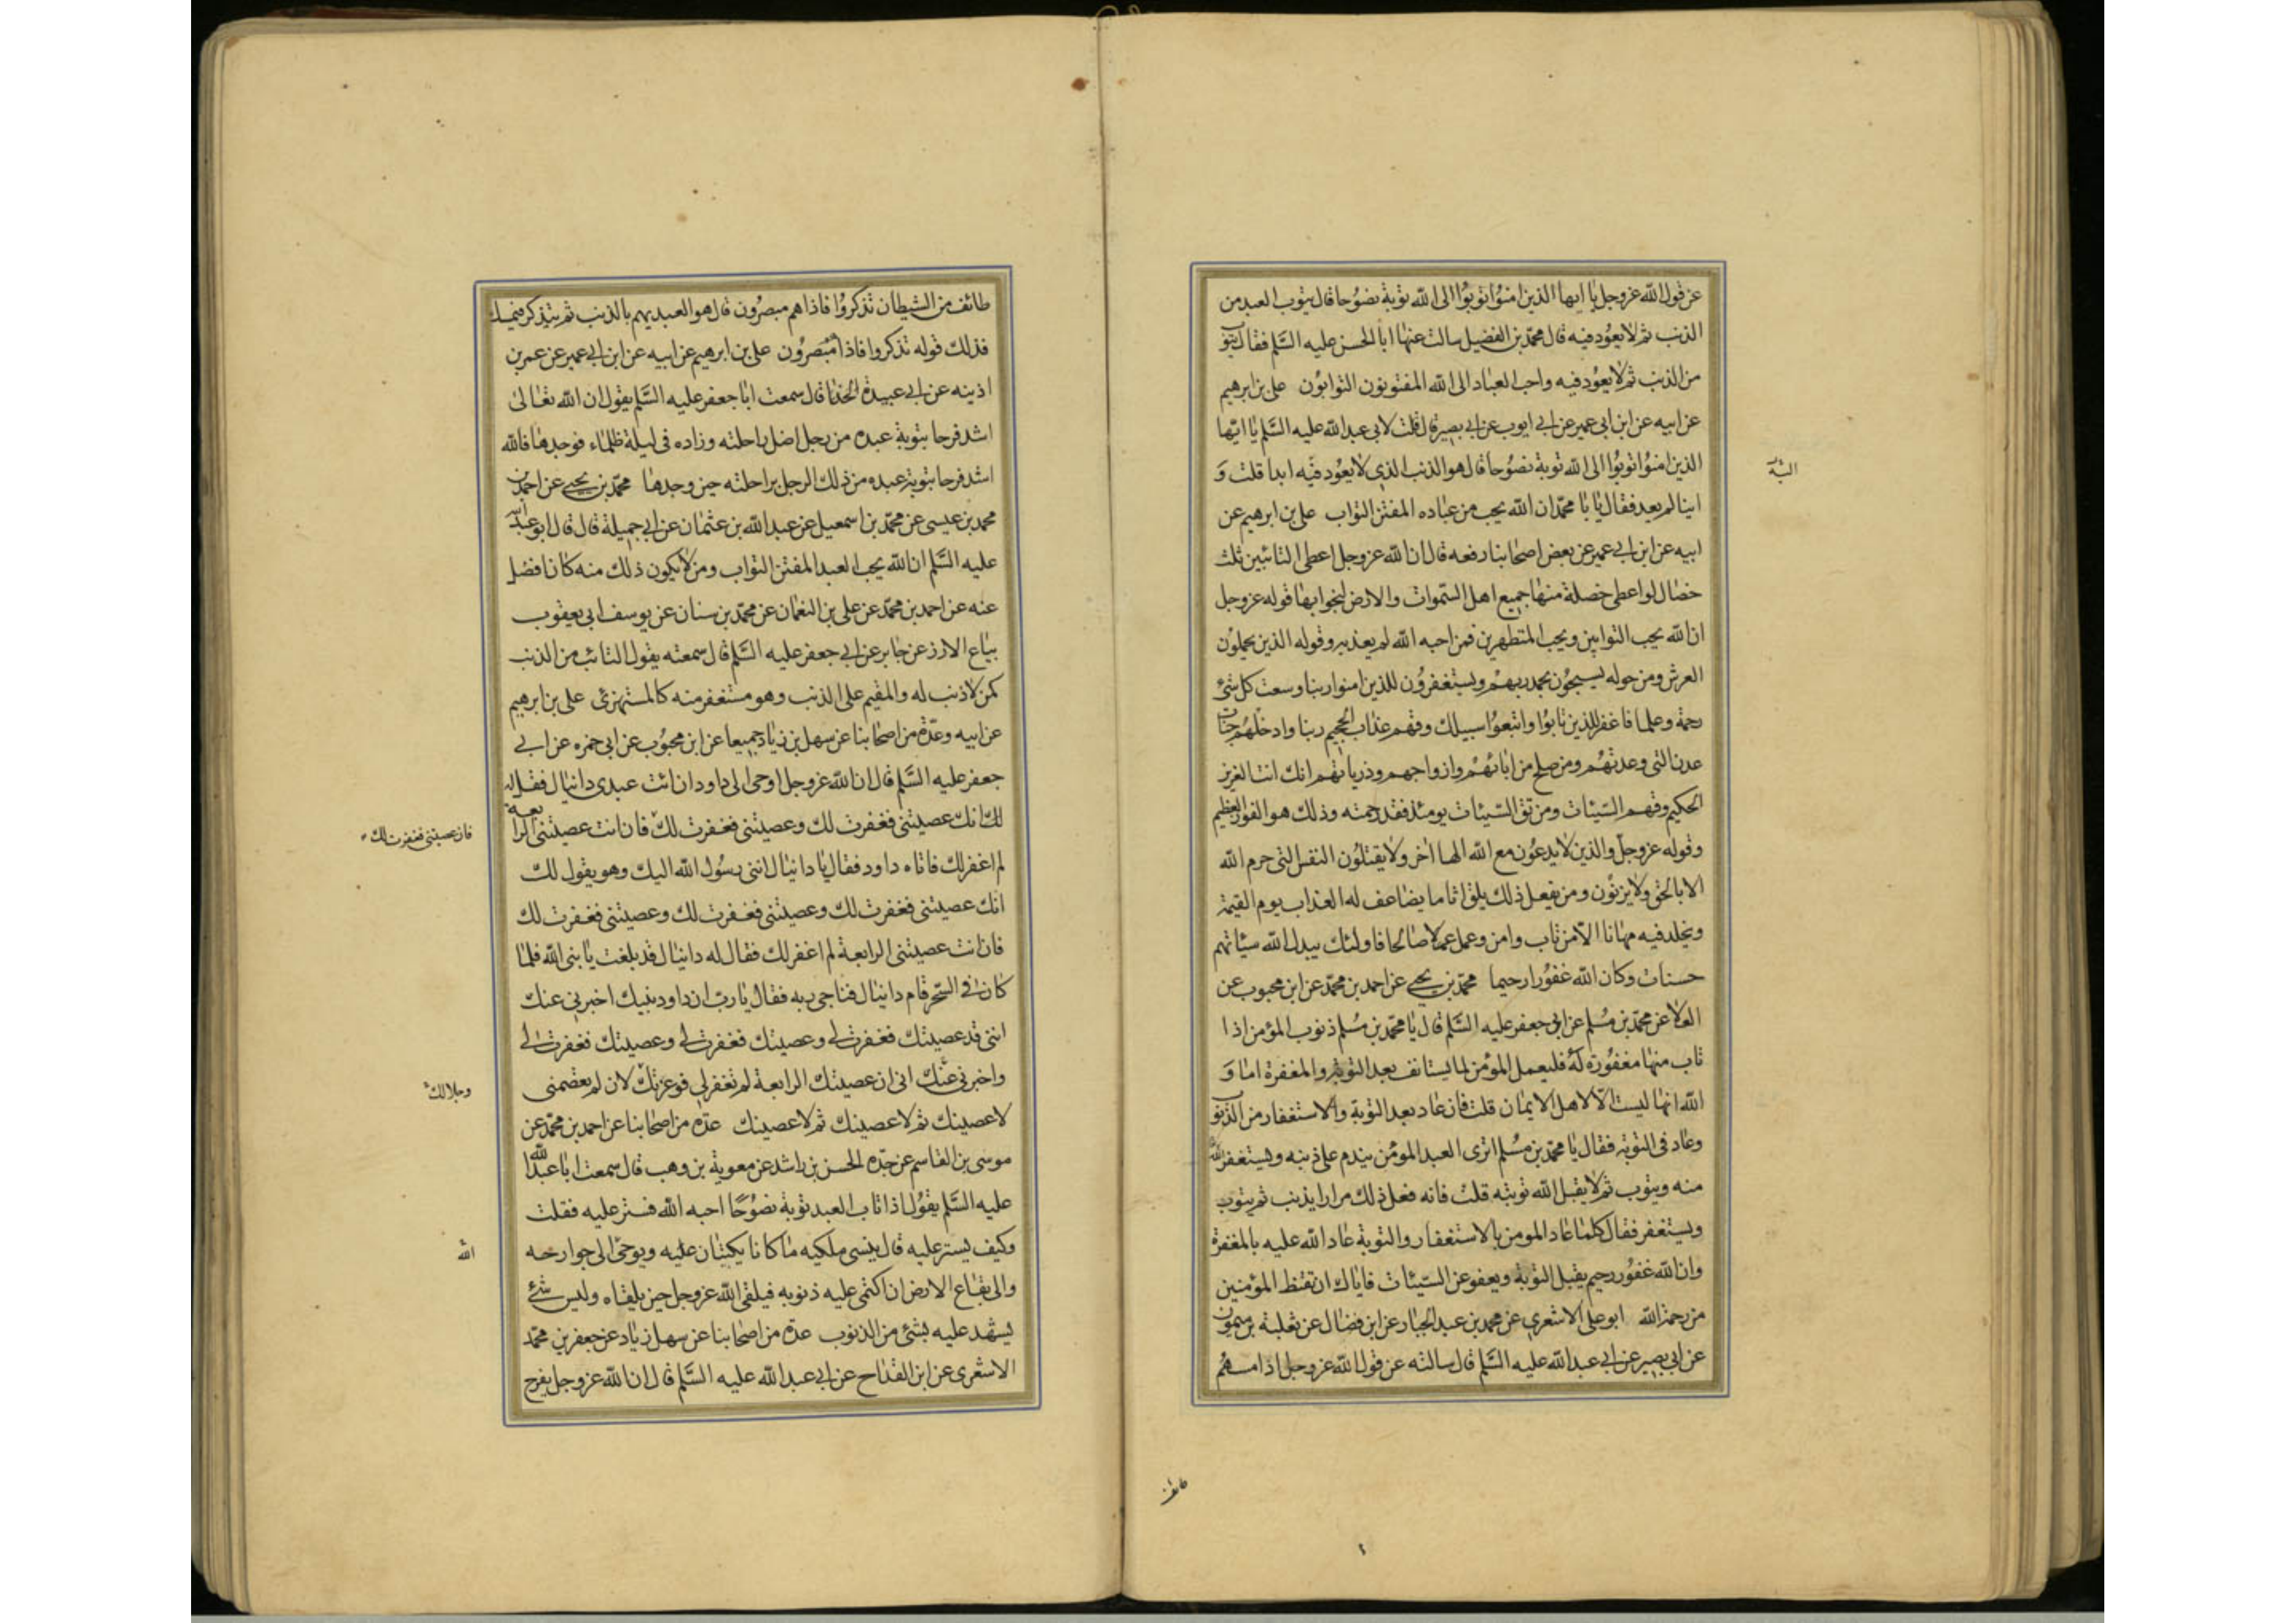 عن قول الله عز وجل يا ايها الذين امنوا توبوا الى الله توبة نصوحا قال يتوب العبد من
الذنب ثم لا يعود فيه قال محمد بن الفضيل سالت عنها ابا الحسن عليه السلم فقال يتوب
من الذنب ثم لا يعود فيه واحب العباد الى الله المفتونون التوابون على بن ابرهيم
عن ابيه عن ابن ابى عمير عن ابى ايوب عن ابى بصير قال قلت لابى عبد الله عليه السلم يا ايها
الذين امنوا توبوا الى الله توبة نصوحا قال هو الذنب الذى لا يعود فيه ابدا قلت و
اينا لم يعد فقال يا با محمد ان الله يحب من عباده المفتن التواب على بن ابرهيم عن
ابيه عن ابن ابى عمير عن بعض اصحابنا رفعه قال ان الله عز وجل اعطى التائبين ثلث
خصال لو اعطى خصلة منها جميع اهل السموات والارض لنجوا بها قوله عز وجل
ان الله يحب التوابين ويحب المتطهرين فمن احبه الله لم يعذبه وقوله الذين يحملون
العرش ومن حوله يسبحون بحمد ربهم ويستغفرون للذين امنوا ربنا وسعت كل شئ
رحمة وعلما فاغفر للذين تابوا واتبعوا سبيلك وقهم عذاب الجحيم ربنا وادخلهم جنات
عدن التى وعدتهم ومن صلح من ابائهم وازواجهم وذرياتهم انك انت العزيز
الحكيم وقهم السيئات ومن تق السيئات يومئذ فقد رحمته وذلك هو الفوز العظيم
وقوله عز وجل والذين لا يدعون مع الله الها اخر ولا يقتلون النفس التى حرم الله
الا بالحق ولا يزنون ومن يفعل ذلك يلق اثاما يضاعف له العذاب يوم القيمة
ويخلد فيه مهانا الا من تاب وامن وعمل عملا صالحا فاولئك يبدل الله سيئاتهم
حسنات وكان الله غفورا رحيما محمد بن يحيى عن احمد بن محمد عن ابن محبوب عن
العلا عن محمد بن مسلم عن ابى جعفر عليه السلم قال يا محمد بن مسلم ذنوب المؤمن اذا
تاب منها مغفورة له فليعمل المؤمن لما يستانف بعد التوبة والمغفرة اما و
الله انها ليست الا لاهل الايمان قلت فان عاد بعد التوبة والاستغفار من الذنوب
وعاد فى التوبة فقال يا محمد بن مسلم اترى العبد المؤمن يندم على ذنبه ويستغفر الله
منه ويتوب ثم لا يقبل الله توبته قلت فانه فعل ذلك مرارا يذنب ثم يتوب
ويستغفر فقال كلما عاد المومن بالاستغفار والتوبة عاد الله عليه بالمغفرة
وان الله غفور رحيم يقبل التوبة ويعفو عن السيئات فاياك ان تقنط المؤمنين
من رحمة الله ابو على الاشعرى عن محمد بن عبد الجبار عن ابن فضال عن ثعلبة بن ميمون
عن ابى بصير عن ابى عبد الله عليه السلم قال سالته عن قول الله عز وجل اذا مسهم
طائف
طائف من الشيطان تذكروا فاذا هم مبصرون قال هو العبد يهم بالذنب ثم يتذكر فيمسك
فذلك قوله تذكروا فاذا هم مبصرون على بن ابرهيم عن ابيه عن ابن ابى عمير عن عمر بن
اذينه عن ابى عبيدة الحذا قال سمعت ابا جعفر عليه السلم يقول ان الله تعالى
اشد فرحا بتوبة عبده من رجل اضل راحلته وزاده فى ليلة ظلماء فوجدها فالله
اشد فرحا بتوبة عبده من ذلك الرجل براحلته حين وجدها محمد بن يحيى عن احمد بن
محمد بن عيسى عن محمد بن اسمعيل عن عبد الله بن عثمان عن ابى جميلة قال قال ابو عبد الله
عليه السلم ان الله يحب العبد المفتن التواب ومن لا يكون ذلك منه كان افضل
عنه عن احمد بن محمد عن على بن النعمان عن محمد بن سنان عن يوسف ابى يعقوب
بياع الارز عن جابر عن ابى جعفر عليه السلم قال سمعته يقول التائب من الذنب
كمن لا ذنب له والمقيم على الذنب وهو مستغفر منه كالمستهزئ على بن ابرهيم
عن ابيه وعدة من اصحابنا عن سهل بن زياد جميعا عن ابن محبوب عن ابى حمزه عن ابى
جعفر عليه السلم قال ان الله عز وجل اوحى الى داود ان ائت عبدى دانيال فقل له
انك عصيتنى فغفرت لك وعصيتنى فغفرت لك فان انت عصيتنى الرابعة
فان عصيتنى فغفرت لك
لم اغفر لك فاتاه داود فقال يا دانيال اننى رسول الله اليك وهو يقول لك
انك عصيتنى فغفرت لك وعصيتنى فغفرت لك وعصيتنى فغفرت لك
فان انت عصيتنى الرابعة لم اغفر لك فقال له دانيال قد بلغت يا نبى الله فلما
كان فى السحر قام دانيال فناجى ربه فقال يا رب ان داود نبيك اخبرنى عنك
اننى قد عصيتك فغفرت لى وعصيتك فغفرت لى وعصيتك فغفرت لى
واخبرنى عنك انى ان عصيتك الرابعة لم تغفر لى فوعزتك لان لم تعصمنى
وجلالك
لاعصينك ثم لاعصينك ثم لاعصينك عدة من اصحابنا عن احمد بن محمد عن
موسى بن القاسم عن جده الحسن بن راشد عن معوية بن وهب قال سمعت ابا عبد الله
عليه السلم يقول اذا تاب العبد توبة نصوحا احبه الله فستر عليه فقلت
وكيف يستر عليه قال ينسى ملكيه ما كانا يكتبان عليه ويوحى الى جوارحه
الله
والى بقاع الارض ان اكتمى عليه ذنوبه فيلقى الله عز وجل حين يلقاه وليس شئ
يشهد عليه بشئ من الذنوب عدة من اصحابنا عن سهل زياد عن جعفر بن محمد
الاشعرى عن ابن القداح عن ابى عبد الله عليه السلم قال ان الله عز وجل يفرح